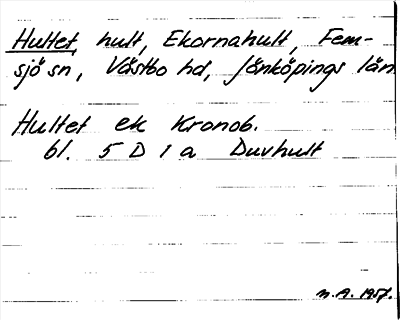 Hultet, hult, Ekornahult, Fem-
sjö sn, Västbo hd, Jönköpings län
Hultet ek Kronob.
bl. 5 D 1 a Duvhult
n.A. 1957.